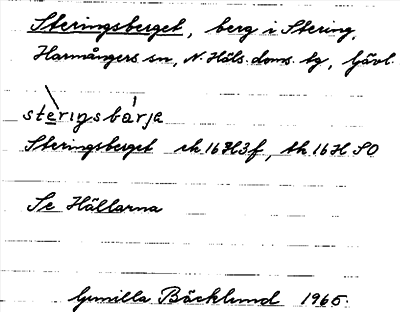 Steringsberget, berg i Stering,
Harmångers sn, N. Häls. doms. tg, Gävl.
steringsbárja
Steringsberget ek 16H3f, tk 16H SO
Se Hällarna
Gunilla Bäcklund 1965.